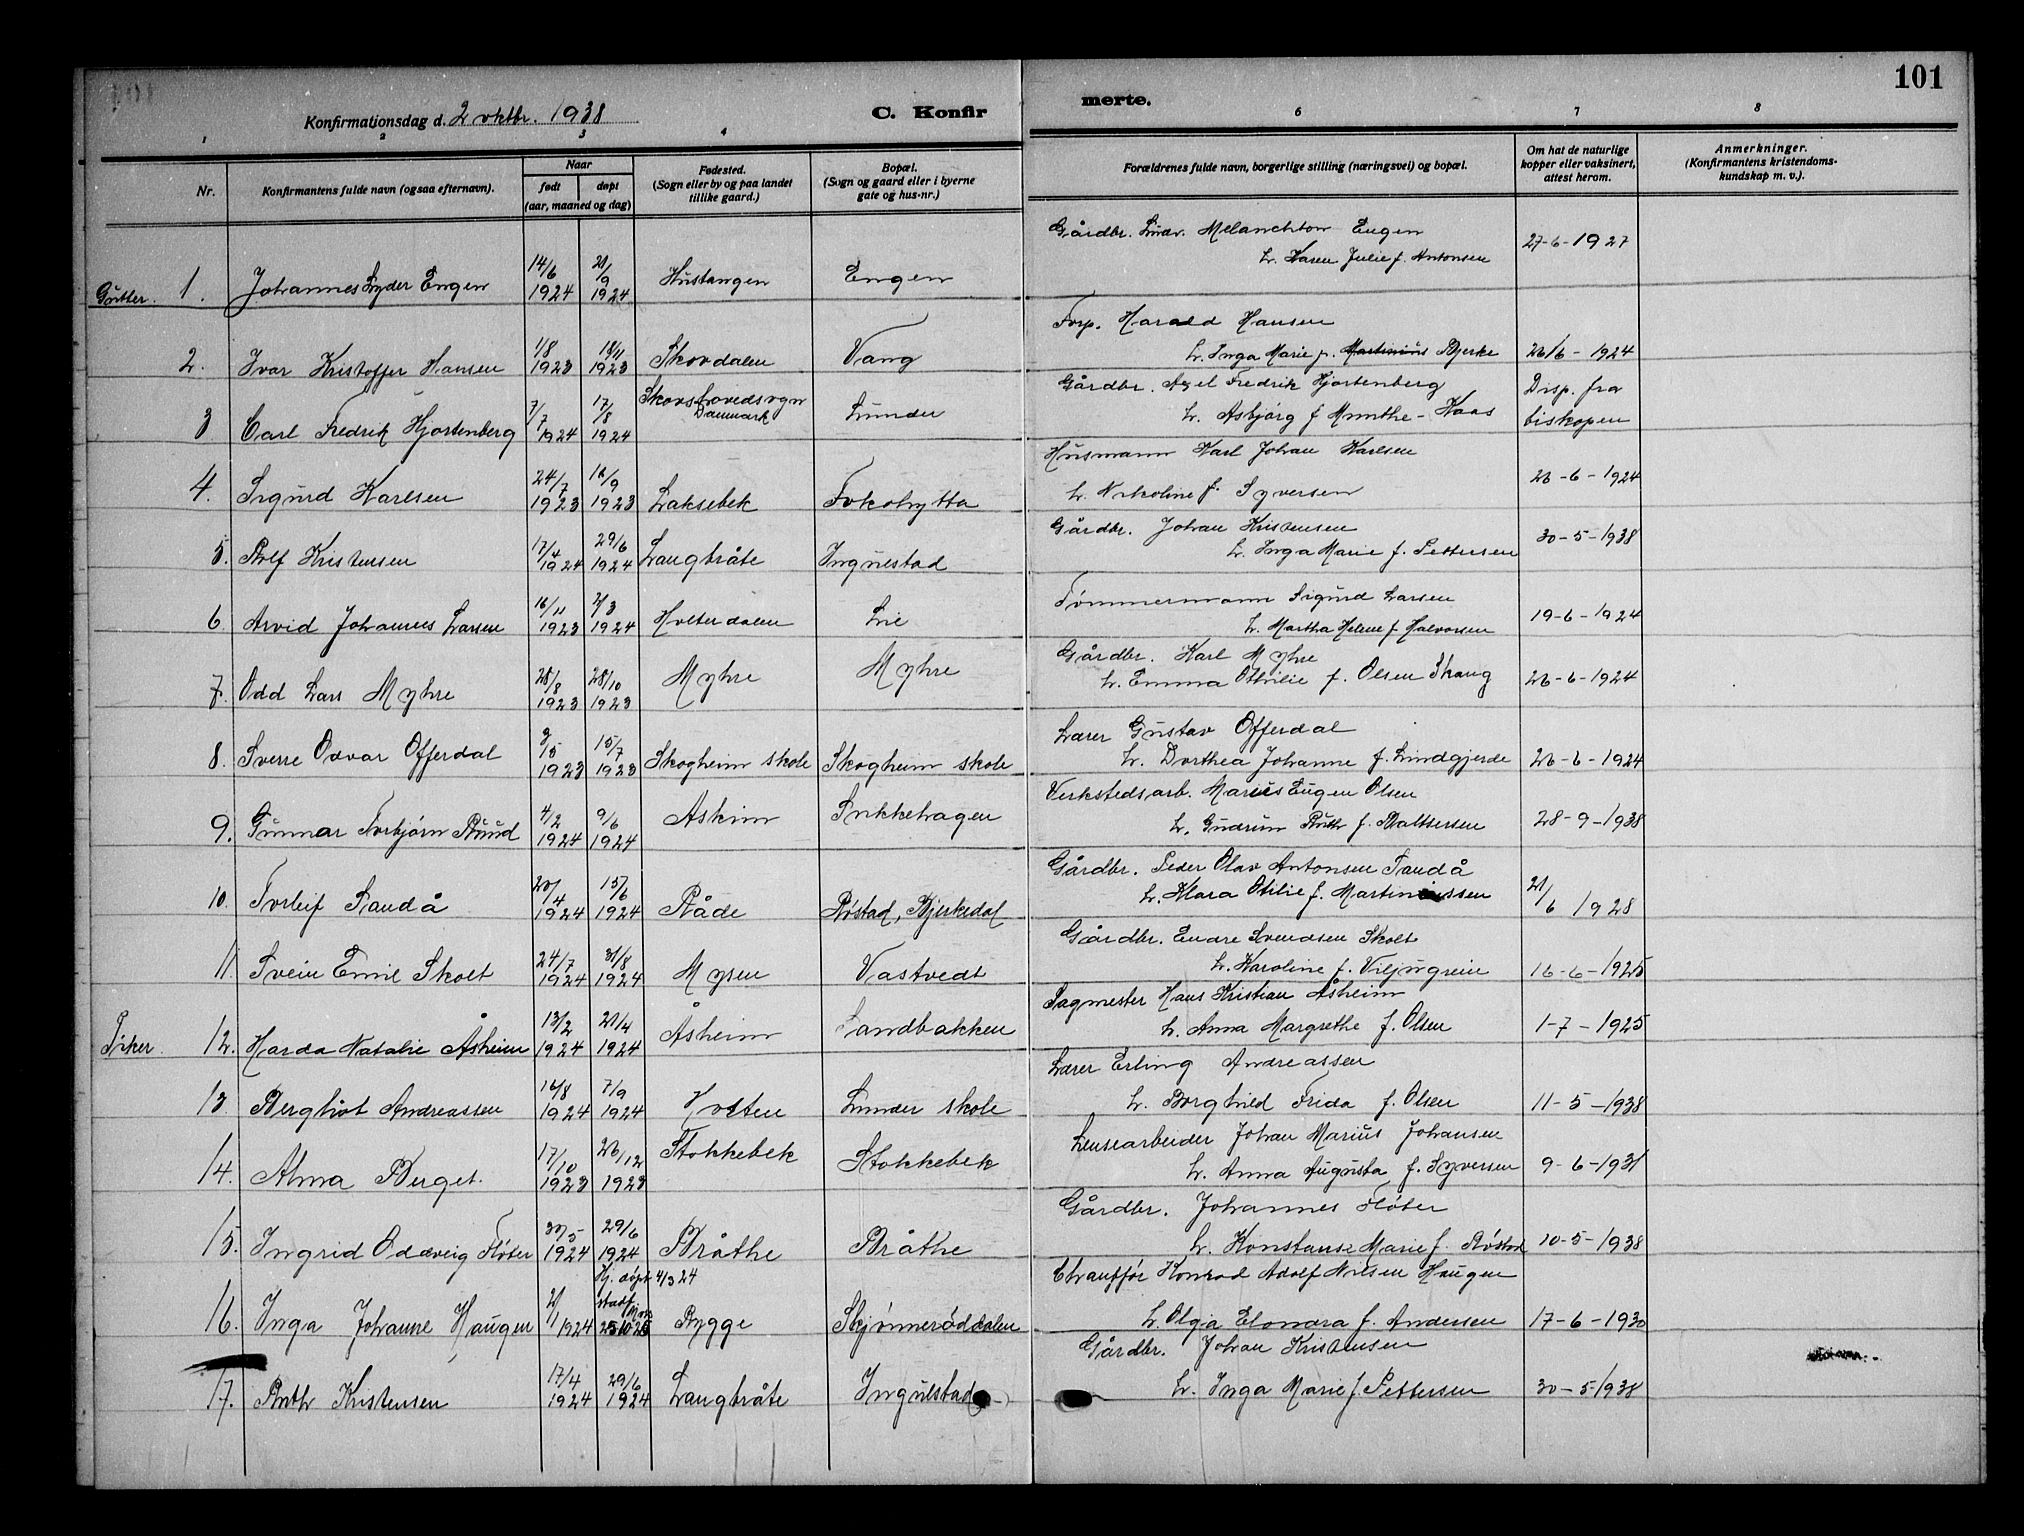 101
Konfirmationsdag d. 2 oktbr. 1938
C. Konfir
merte.
1 2 3 4 6 7 8
Nr.
Konfirmantens fulde navn (ogsaa efternavn).
Naar
født døpt
(aar, maaned og dag)
Fødested.
(Sogn eller by og paa landet
tillike gaard.)
Bopæl.
(Sogn og gaard eller i byerne
gate og hus-nr.)
Forældrenes fulde navn, borgerlige stilling (næringsvei) og bopæl.
Om hat de naturlige
kopper eller vaksinert,
attest herom.
Anmerkninger.
(Konfirmantens kristendoms-
kundskap m. v.).
Gutter. 1. Johannes Lyder Engen 14/6 1924 21/9 1924 Hustangen Engen
Gårdbr. Ludv. Melanchton Engen
h. Karen Julie f. Antonsen 27-6-1927
2. Ivar Kristoffer Hansen 1/8 1923 18/11 1923 Skovdalen Vang
Forp. Harald Hansen
h. Inga Marie f. Bjerke 26/6 - 1924
3 Carl Fredrik Hjortenberg 7/7 1924 17/8 1924 Skovshovedsogn Danmark Lunder
Gårdbr. Axel Fredrik Hjortenberg
h. Asbjørg f Munthe-Kaas Disp. fra biskopen
4. Sigurd Karlsen 24/7 1923 16/9 1923 Laksebek Fokohytta
Husmann Karl Johan Karlsen
h. Nikoline f. Syversen 26-6-1924
5. Rolf Kristensen 17/4 1924 29/6 1924 Langbråte Ingulstad
Gårdbr. Johan Kristensen
h. Inga Marie f. Pettersen 30-5-1938
6. Arvid Johannes Larsen 16/11 1923 2/3 1924 Holterdalen Lie
Tømmermann Sigurd Larsen
h. Martha Helene f Halvorsen 19-6-1924
7. Odd Lars Myhre 28/8 1923 28/10 1923 Myhre Myhre
Gårdbr. Karl Myhre
h. Emma Ottilie f. Olsen Skaug 26-6-1924
8. Sverre Odvar Offerdal 1923 15/7 1923 Skogheim skole Skogheim skole
Lærer Gustav Offerdal
h. Dorthea Johanne f. Lindgjerde 26-6-1924
9. Gunnar Torbjørn Ruud 4/2 1924 9/6 1924 Askim Snikkehagen
Verkstedsarb. Marius Eugen Olsen
h. Gudrun Ruth f. Baltsersen 28-9-1938
10. Torleif Sandå 20/4 1924 15/6 1924 Råde Røstad, Bjerkedal
Gårdbr. Peder Olav Antonsen Sandå
h. Klara Otilie f. Martiniussen 21/6 1928
11. Svein Emil Skolt 24/7 1924 31/8 1924 Mysen Vastvedt
Gårdbr. Endre Svendsen Skolt
h. Karoline f. Viljugrein 16-6-1925
Piker. 12. Harda Natalie Åsheim 13/2 1924 21/4 1924 Åsheim Sandbakken
Sagmester Hans Kristian Åsheim
h. Anna Margrethe f. Olsen 1-7-1925
13. Bergliot Andreassen 16/8 1924 7/9 1924 Hvsten Lunder skole
Lærer Erling Andreassen
h. Borghild Frida f. Olsen 11-5-1938
14. Alma Berget. 17/10 1923 26/12 1923 Stokkebek Stokkebek
Lensearbeider Johan Marius Johansen
h. Anna Augusta f. Syversen 9-6-1931
15. Ingrid Oddveig Fløter 30/5 1924 29/6 1924 Bråthe Bråthe
Gårdbr. Johannes Fløter
h. Konstanse Marie f. Røstad 10-5-1938
16. Inga Johanne Haugen 2/1 1924 Hj. døpt 4/3 24 stadf. Moss 25 10 25 Rygge Skjønnerøddalen
Chauffør Konrad Adolf Nilsen Haugen
h. Olga Elonora f. Andersen 17-6-1930
17. Ruth Kristensen 17/4 1924 29/6 1924 Langbråte Ingulstad
Gårdbr. Johan Kristensen
h. Inga Marie f. Pettersen 30-5-1938